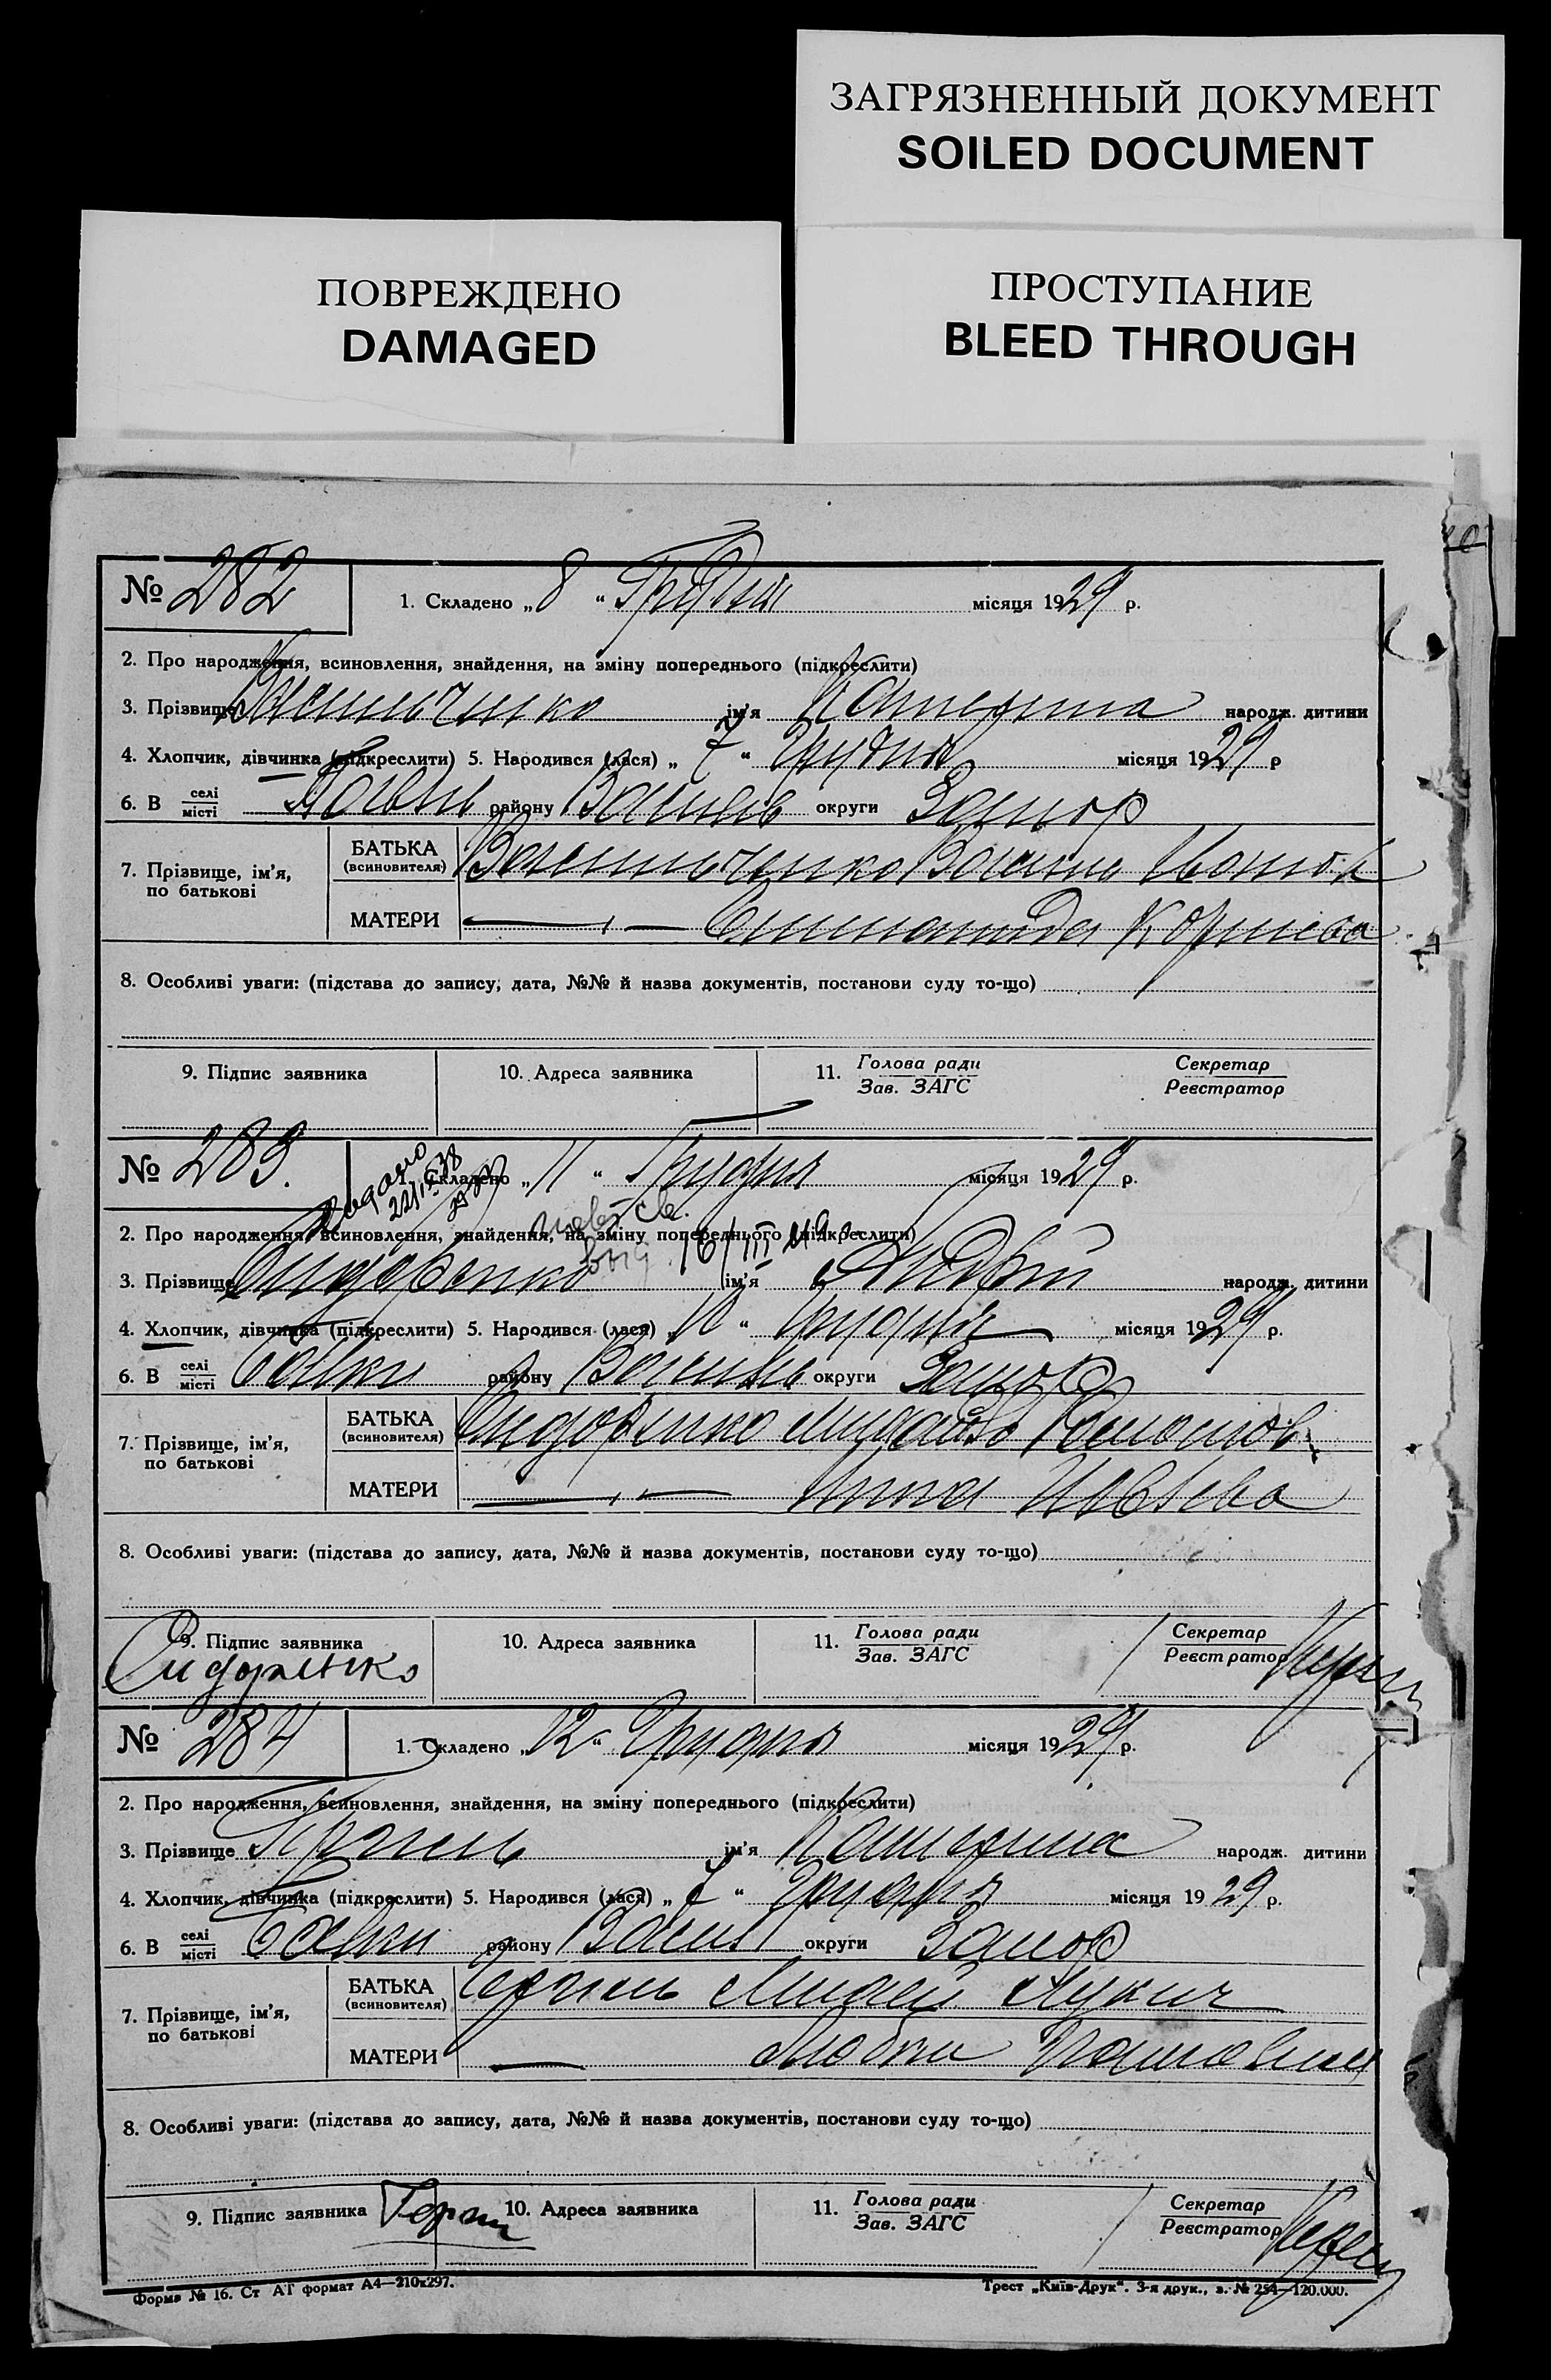 ЗАГРЯЗНЕННЫЙ ДОКУМЕНТ
SOILED DOCUMENT
ПОВРЕЖДЕНО
DAMAGED
ПРОСТУПАНИЕ
BLEED THROUGH
№ 282 1. Складено „ 8 “ Грудня місяця 1929 р.
2. Про народження, всиновлення, знайдення, на зміну попереднього (підкреслити)
3. Прізвище Васильченко ім'я Катерина народж. дитини
4. Хлопчик, дівчинка (підкреслити) 5. Народився (лася) „ 7 “ Грудня місяця 1929 р
6. В селі/місті Балки району Василів округи Запор
7. Прізвище, ім'я, по батькові БАТЬКА (всиновителя) Васильченко
МАТЕРИ
8. Особливі уваги: (підстава до запису, дата, №№ й назва документів, постанови суду то-що)
9. Підпис заявника 10. Адреса заявника 11. Голова ради/Зав. ЗАГС Секретар/Реєстратор
№ 283. 1. Складено „ 11 “ Грудня місяця 1929 р.
2. Про народження, всиновлення, знайдення, на зміну попереднього (підкреслити)
3. Прізвище Сидоренко ім'я Андрій народж. дитини
4. Хлопчик, дівчинка (підкреслити) 5. Народився (лася) „ 10 “ Грудня місяця 1929 р.
6. В селі/місті Балки району Василів округи Запор
7. Прізвище, ім'я, по батькові БАТЬКА (всиновителя) Сидоренко Михайло
МАТЕРИ Ганна
8. Особливі уваги: (підстава до запису, дата, №№ й назва документів, постанови суду то-що)
9. Підпис заявника 10. Адреса заявника 11. Голова ради/Зав. ЗАГС Секретар/Реєстратор
Сидоренко
№ 284 1. Складено „ 12 “ Грудня місяця 1929 р.
2. Про народження, всиновлення, знайдення, на зміну попереднього (підкреслити)
3. Прізвище ім'я Катерина народж. дитини
4. Хлопчик, дівчинка (підкреслити) 5. Народився (лася) „ 7 “ Грудня місяця 1929 р.
6. В селі/місті Балки району Васил округи Запор
7. Прізвище, ім'я, по батькові БАТЬКА (всиновителя) Лукич
МАТЕРИ
8. Особливі уваги: (підстава до запису, дата, №№ й назва документів, постанови суду то-що)
9. Підпис заявника 10. Адреса заявника 11. Голова ради/Зав. ЗАГС Секретар/Реєстратор
Форма № 16. Ст АТ формат А4—210х297. Трест „Київ-Друк“. 3-я друк., з. № 254—120.000.